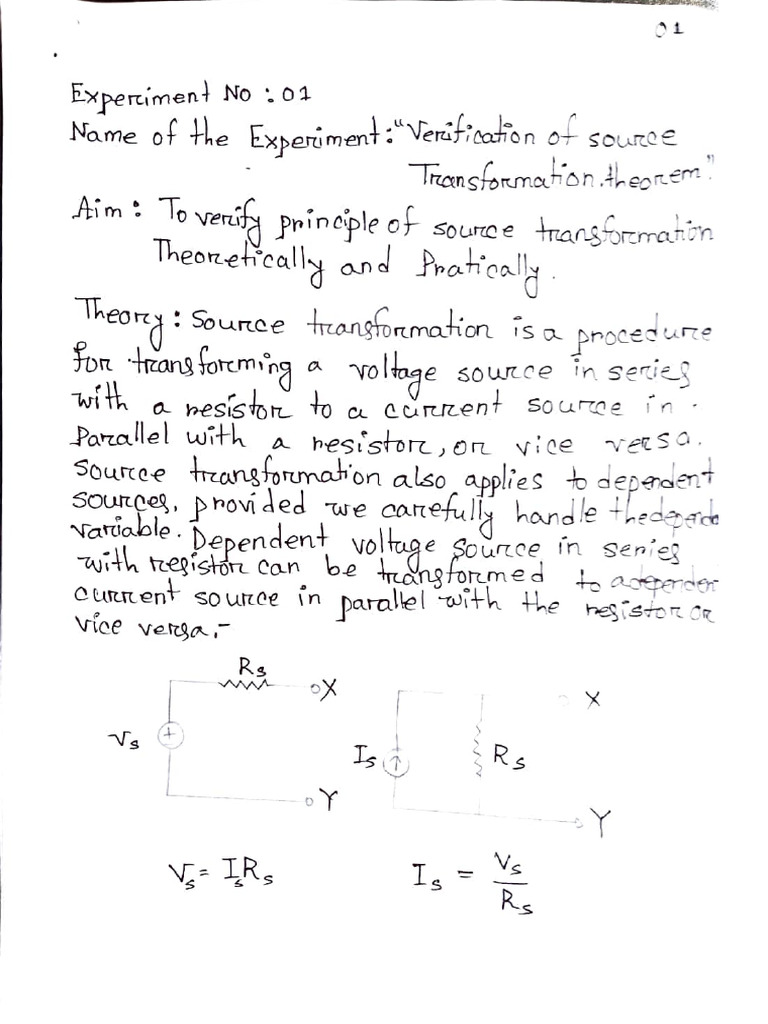 01
Experiment No : 01
Name of the Experiment: "Verification of source
Transformation theorem"
Aim : To verify principle of source transformation
Theoretically and Pratically.
Theory : Source transformation is a procedure
for transforming a voltage source in series
with a resistor to a current source in
Parallel with a resistor, or vice versa.
Source transformation also applies to dependent
sources, provided we carefully handle the depende
variable. Dependent voltage source in series
with resistor can be transformed to a depender
current source in parallel with the resistor or
vice versa,-
Rs
X
X
Vs
+
Is
Rs
Y
Y
Vs = IsRs
Is = Vs
Rs